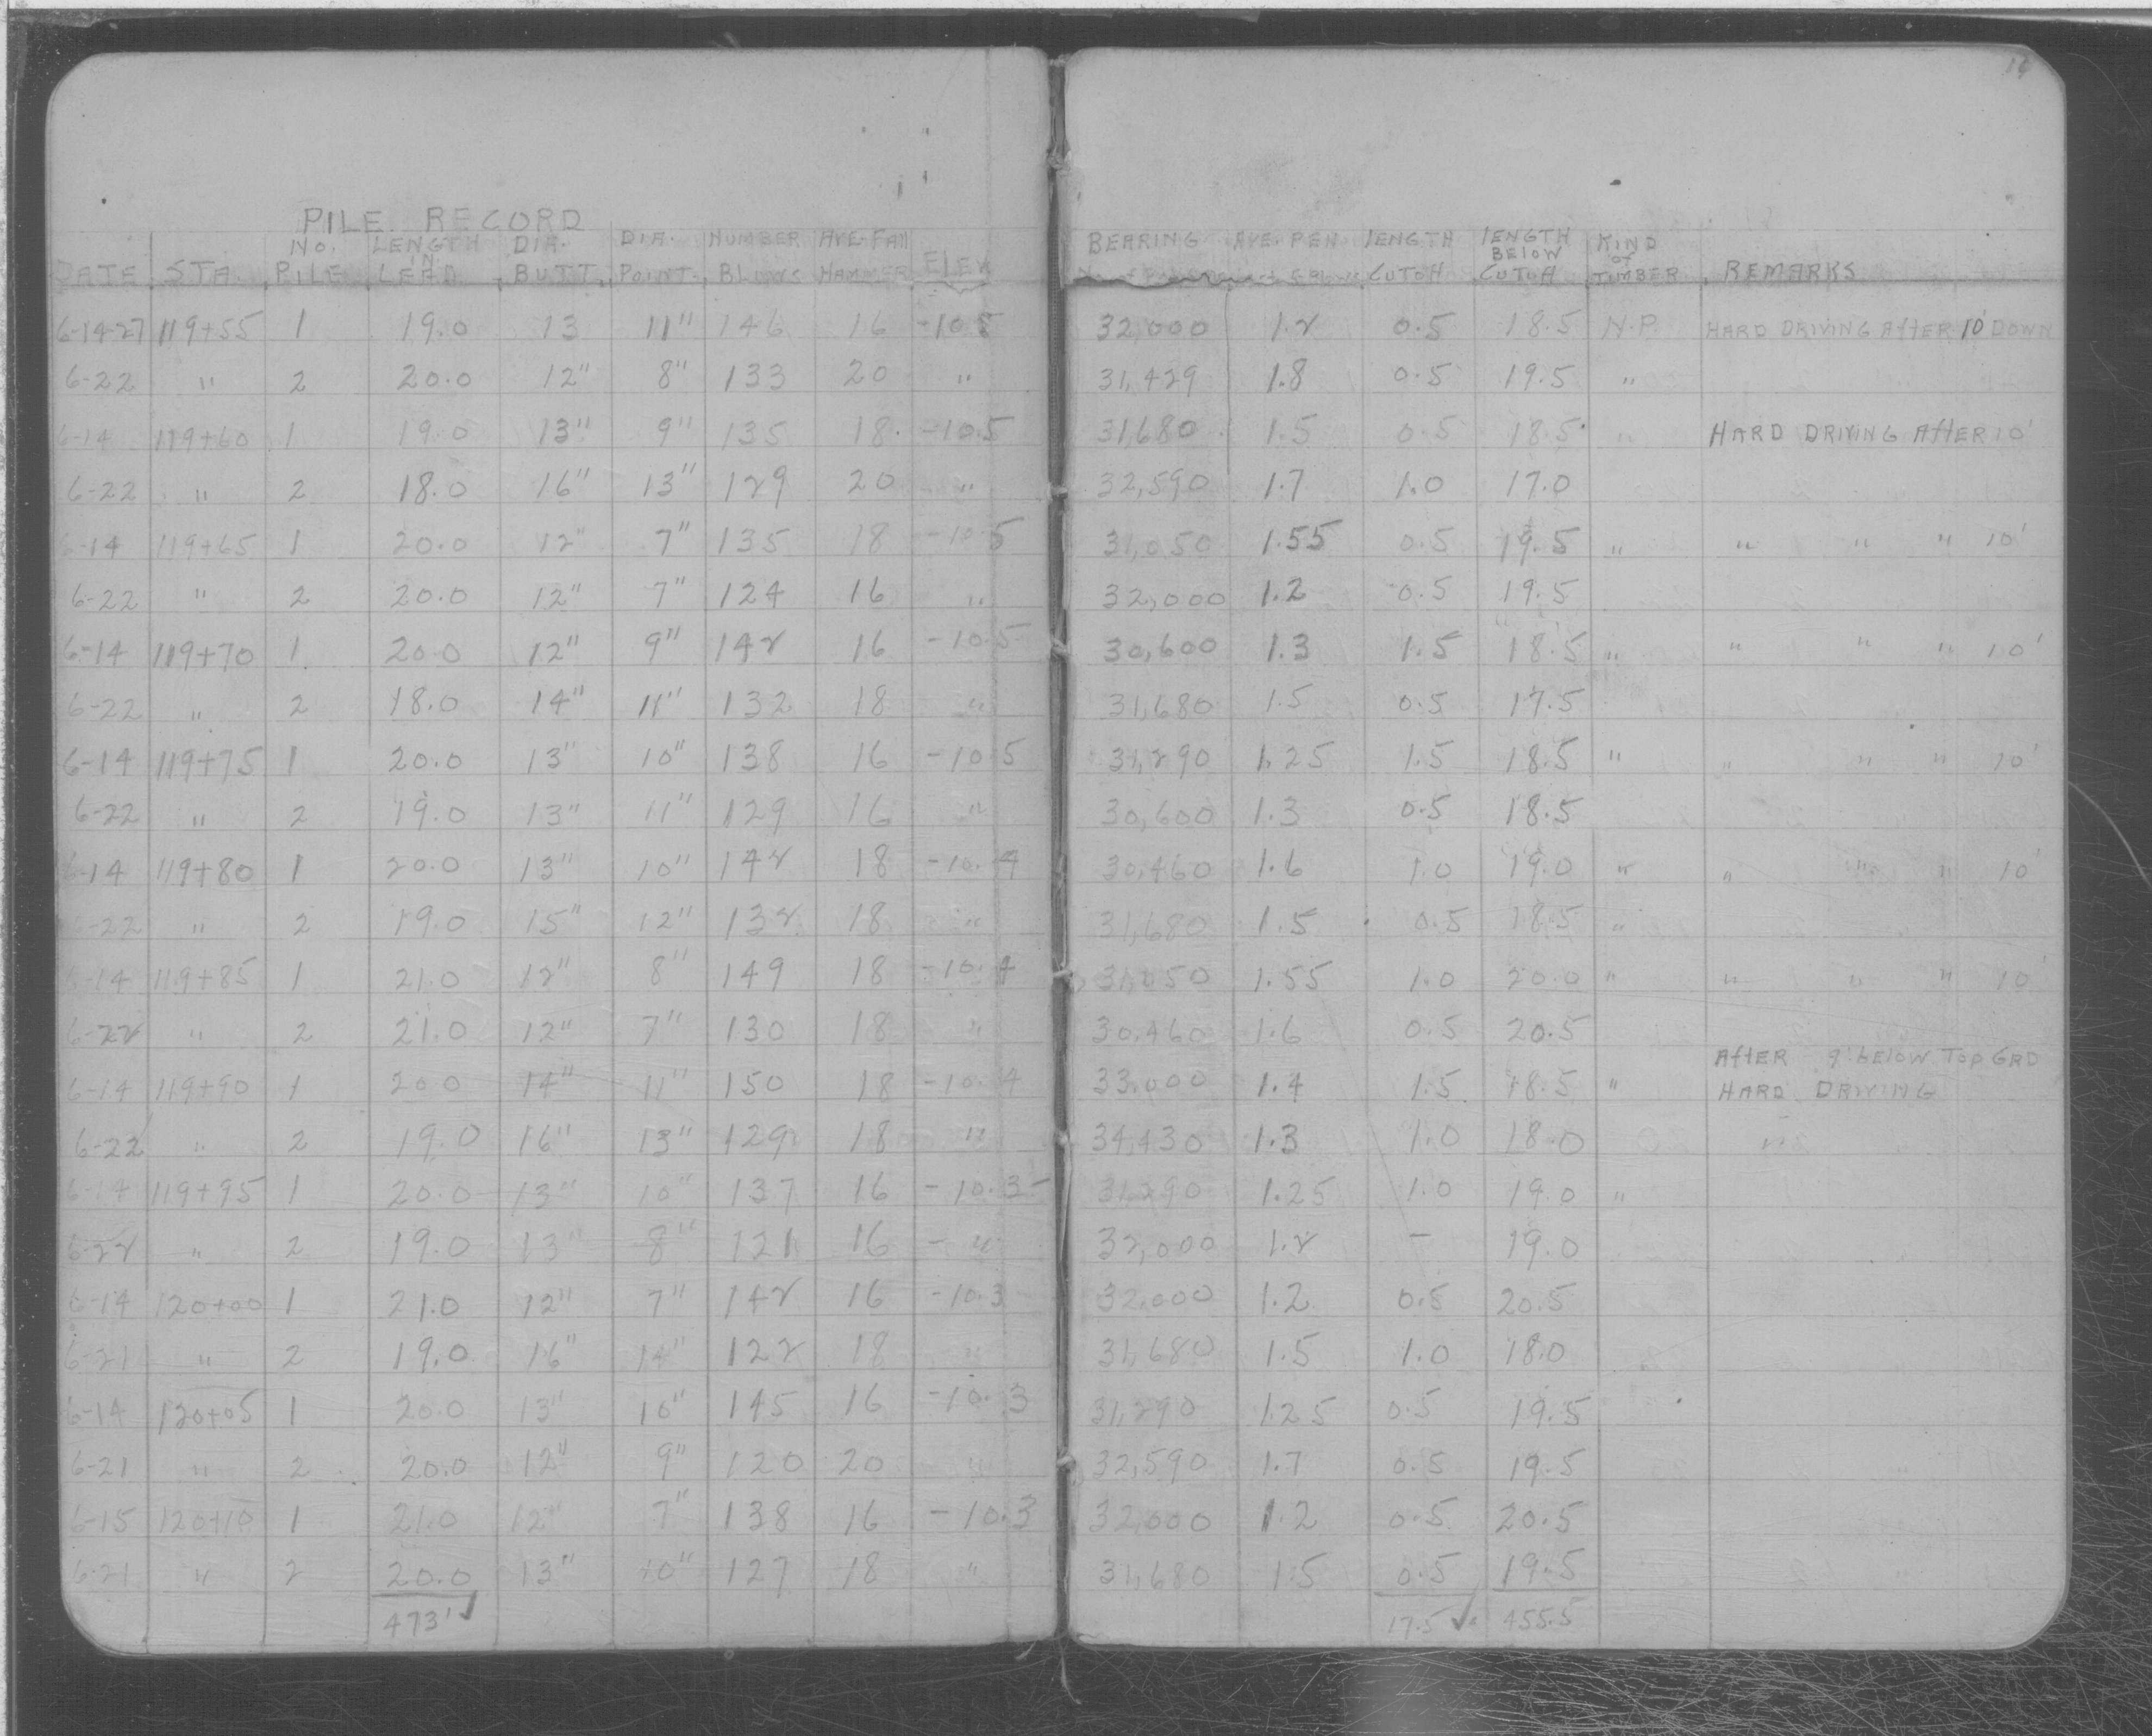 14
PILE RECORD
DATE STA. No. PILE LENGTH IN LEAD DIA. BUTT. DIA. POINT. NUMBER BLOWS AVE. FAll HAMMER ElEV BEARING AVE. PEN lENGTH CUTOff lENGTH BELOW CUTOff KIND OF TIMBER REMARKS
6-14-27 119+55 1 19.0 13 11" 146 16 -10.5 32,000 1.2 0.5 18.5 N.P. HARD DRIVING AftER 10' DOWN
6-22 " 2 20.0 12" 8" 133 20 " 31,429 1.8 0.5 19.5 "
6-14 119+60 1 19.0 13" 9" 135 18. -10.5 31,680 1.5 0.5 18.5 " HARD DRIVING AftER 10'
6-22 " 2 18.0 16" 13" 129 20 " 32,590 1.7 1.0 17.0
6-14 119+65 1 20.0 12" 7" 135 18 -10.5 31,050 1.55 0.5 19.5 " " " " 10'
6-22 " 2 20.0 12" 7" 124 16 " 32,000 1.2 0.5 19.5
6-14 119+70 1 20.0 12" 9" 142 16 -10.5 30,600 1.3 1.5 18.5 " " " " 10'
6-22 " 2 18.0 14" 11" 132 18 " 31,680 1.5 0.5 17.5
6-14 119+75 1 20.0 13" 10" 138 16 -10.5 31,290 1.25 1.5 18.5 " " " " 10'
6-22 " 2 19.0 13" 11" 129 16 " 30,600 1.3 0.5 18.5
6-14 119+80 1 20.0 13" 10" 142 18 -10.4 30,460 1.6 1.0 19.0 " " " " 10'
6-22 " 2 19.0 15" 12" 132 18 " 31,680 1.5 0.5 18.5 "
6-14 119+85 1 21.0 12" 8" 149 18 -10.4 31,050 1.55 1.0 20.0 " " " " 10'
6-22 " 2 21.0 12" 7" 130 18 " 30,460 1.6 0.5 20.5
AftER 9' bElOW TOP GRD
6-14 119+90 1 20.0 14" 11" 150 18 -10.4 33,000 1.4 1.5 18.5 " HARD DRIVING
6-22 " 2 19.0 16" 13" 129 18 " 34,430 1.3 1.0 18.0 "
6-14 119+95 1 20.0 13" 10" 137 16 -10.3 31,290 1.25 1.0 19.0 "
6-22 " 2 19.0 13" 8" 121 16 - " 32,000 1.2 - 19.0
6-14 120+00 1 21.0 12" 7" 142 16 -10.3 32,000 1.2 0.5 20.5
6-21 " 2 19.0 16" 14" 122 18 " 31,680 1.5 1.0 18.0
6-14 120+05 1 20.0 13" 10" 145 16 -10.3 31,290 1.25 0.5 19.5
6-21 " 2 20.0 12" 9" 120 20 " 32,590 1.7 0.5 19.5
6-15 120+10 1 21.0 12" 7" 138 16 -10.3 32,000 1.2 0.5 20.5
6-21 " 2 20.0 13" 10" 127 18 " 31,680 1.5 0.5 19.5
473' ✓ 17.5 ✓ 455.5